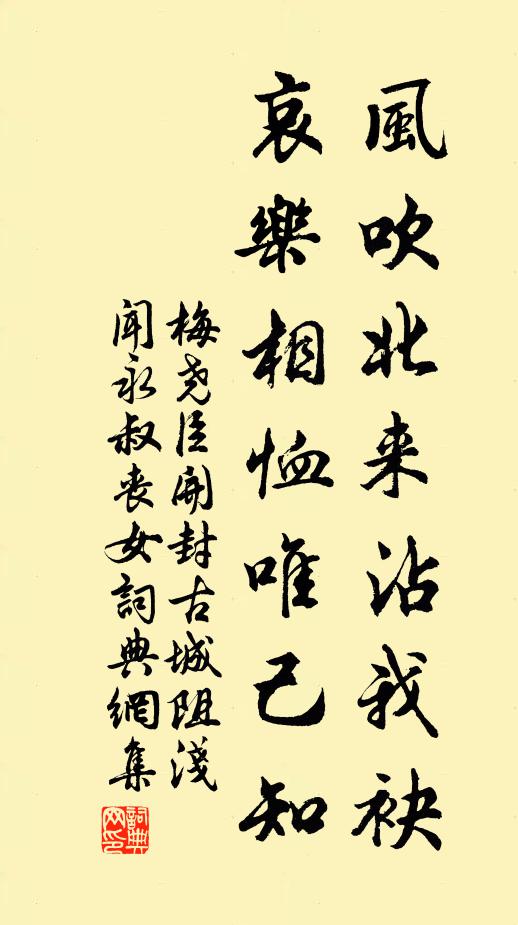 風吹北来沾我袂
哀樂相恤唯己知
梅尧臣開封古城阻淺
闻永叔喪女詞典網集
詞典網印